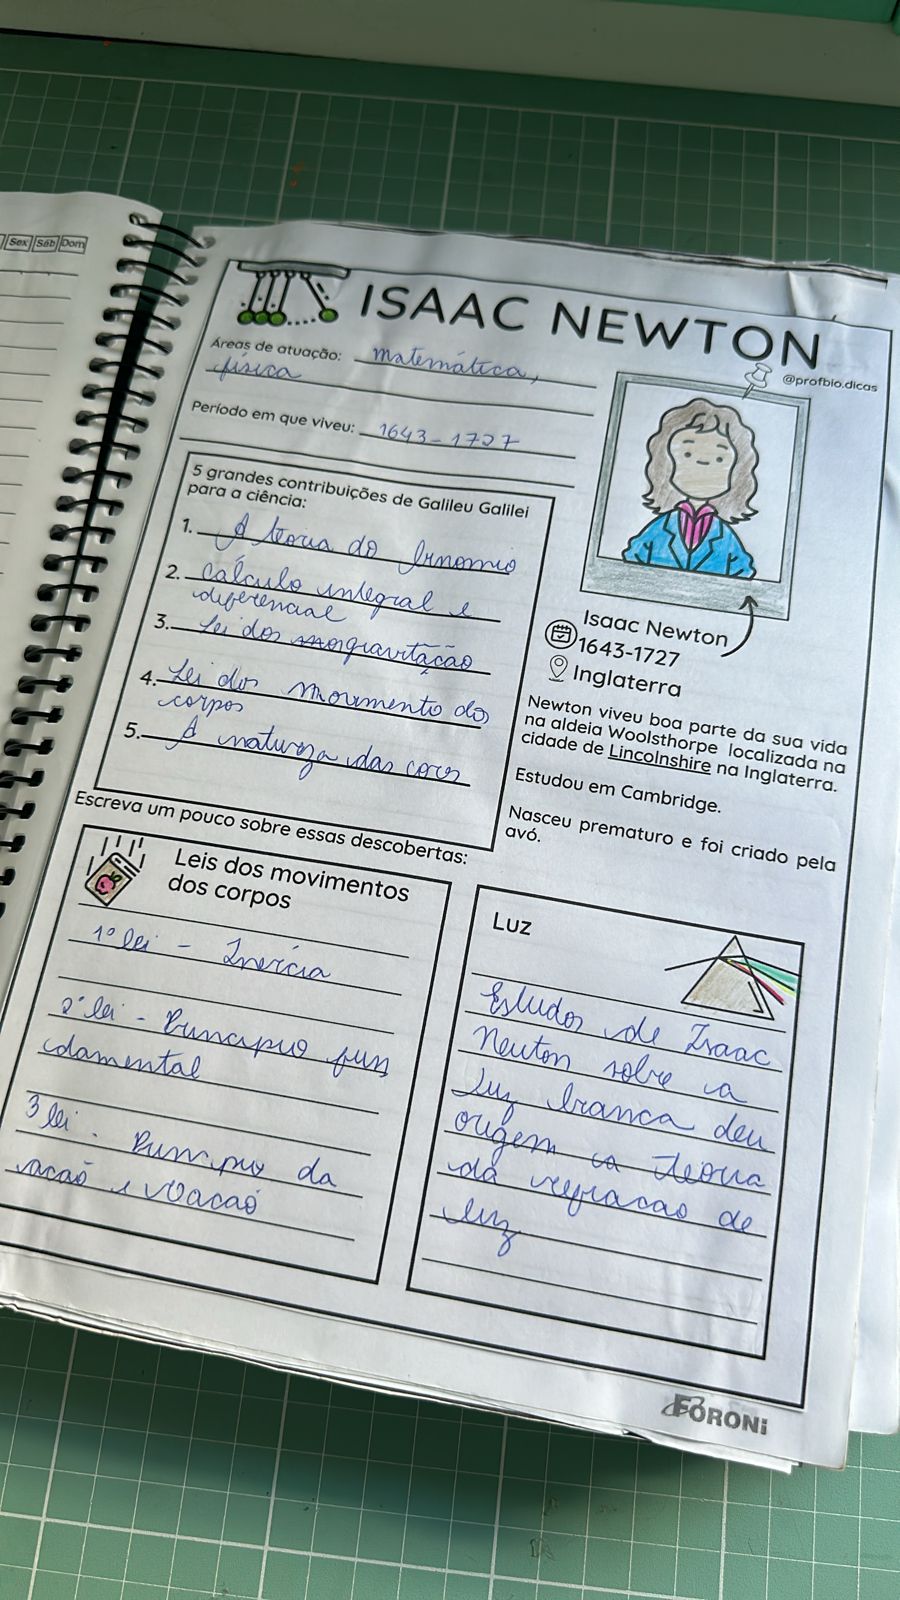 Sex Sáb Dom
ISAAC NEWTON
@profbio.dicas
Áreas de atuação: matemática,
física
Período em que viveu: 1643-1727
5 grandes contribuições de Galileu Galilei
para a ciência:
1. A teoria do binomio
2. cálculo integral e
diferencial
3. Lei dos gravitação
4. Lei dos movimento do
corpos
5. A natureza das cores
Isaac Newton
1643-1727
Inglaterra
Newton viveu boa parte da sua vida
na aldeia Woolsthorpe localizada na
cidade de Lincolnshire na Inglaterra.
Estudou em Cambridge.
Nasceu prematuro e foi criado pela
avó.
Escreva um pouco sobre essas descobertas:
Leis dos movimentos
dos corpos
1º lei - Inércia
2º lei - Principio fun
damental
3 lei - Principio da
acaõ e reacaõ
Luz
Estudos de Isaac
Newton sobre a
luz branca deu
origem a teoria
da refracao de
luz
FORONI